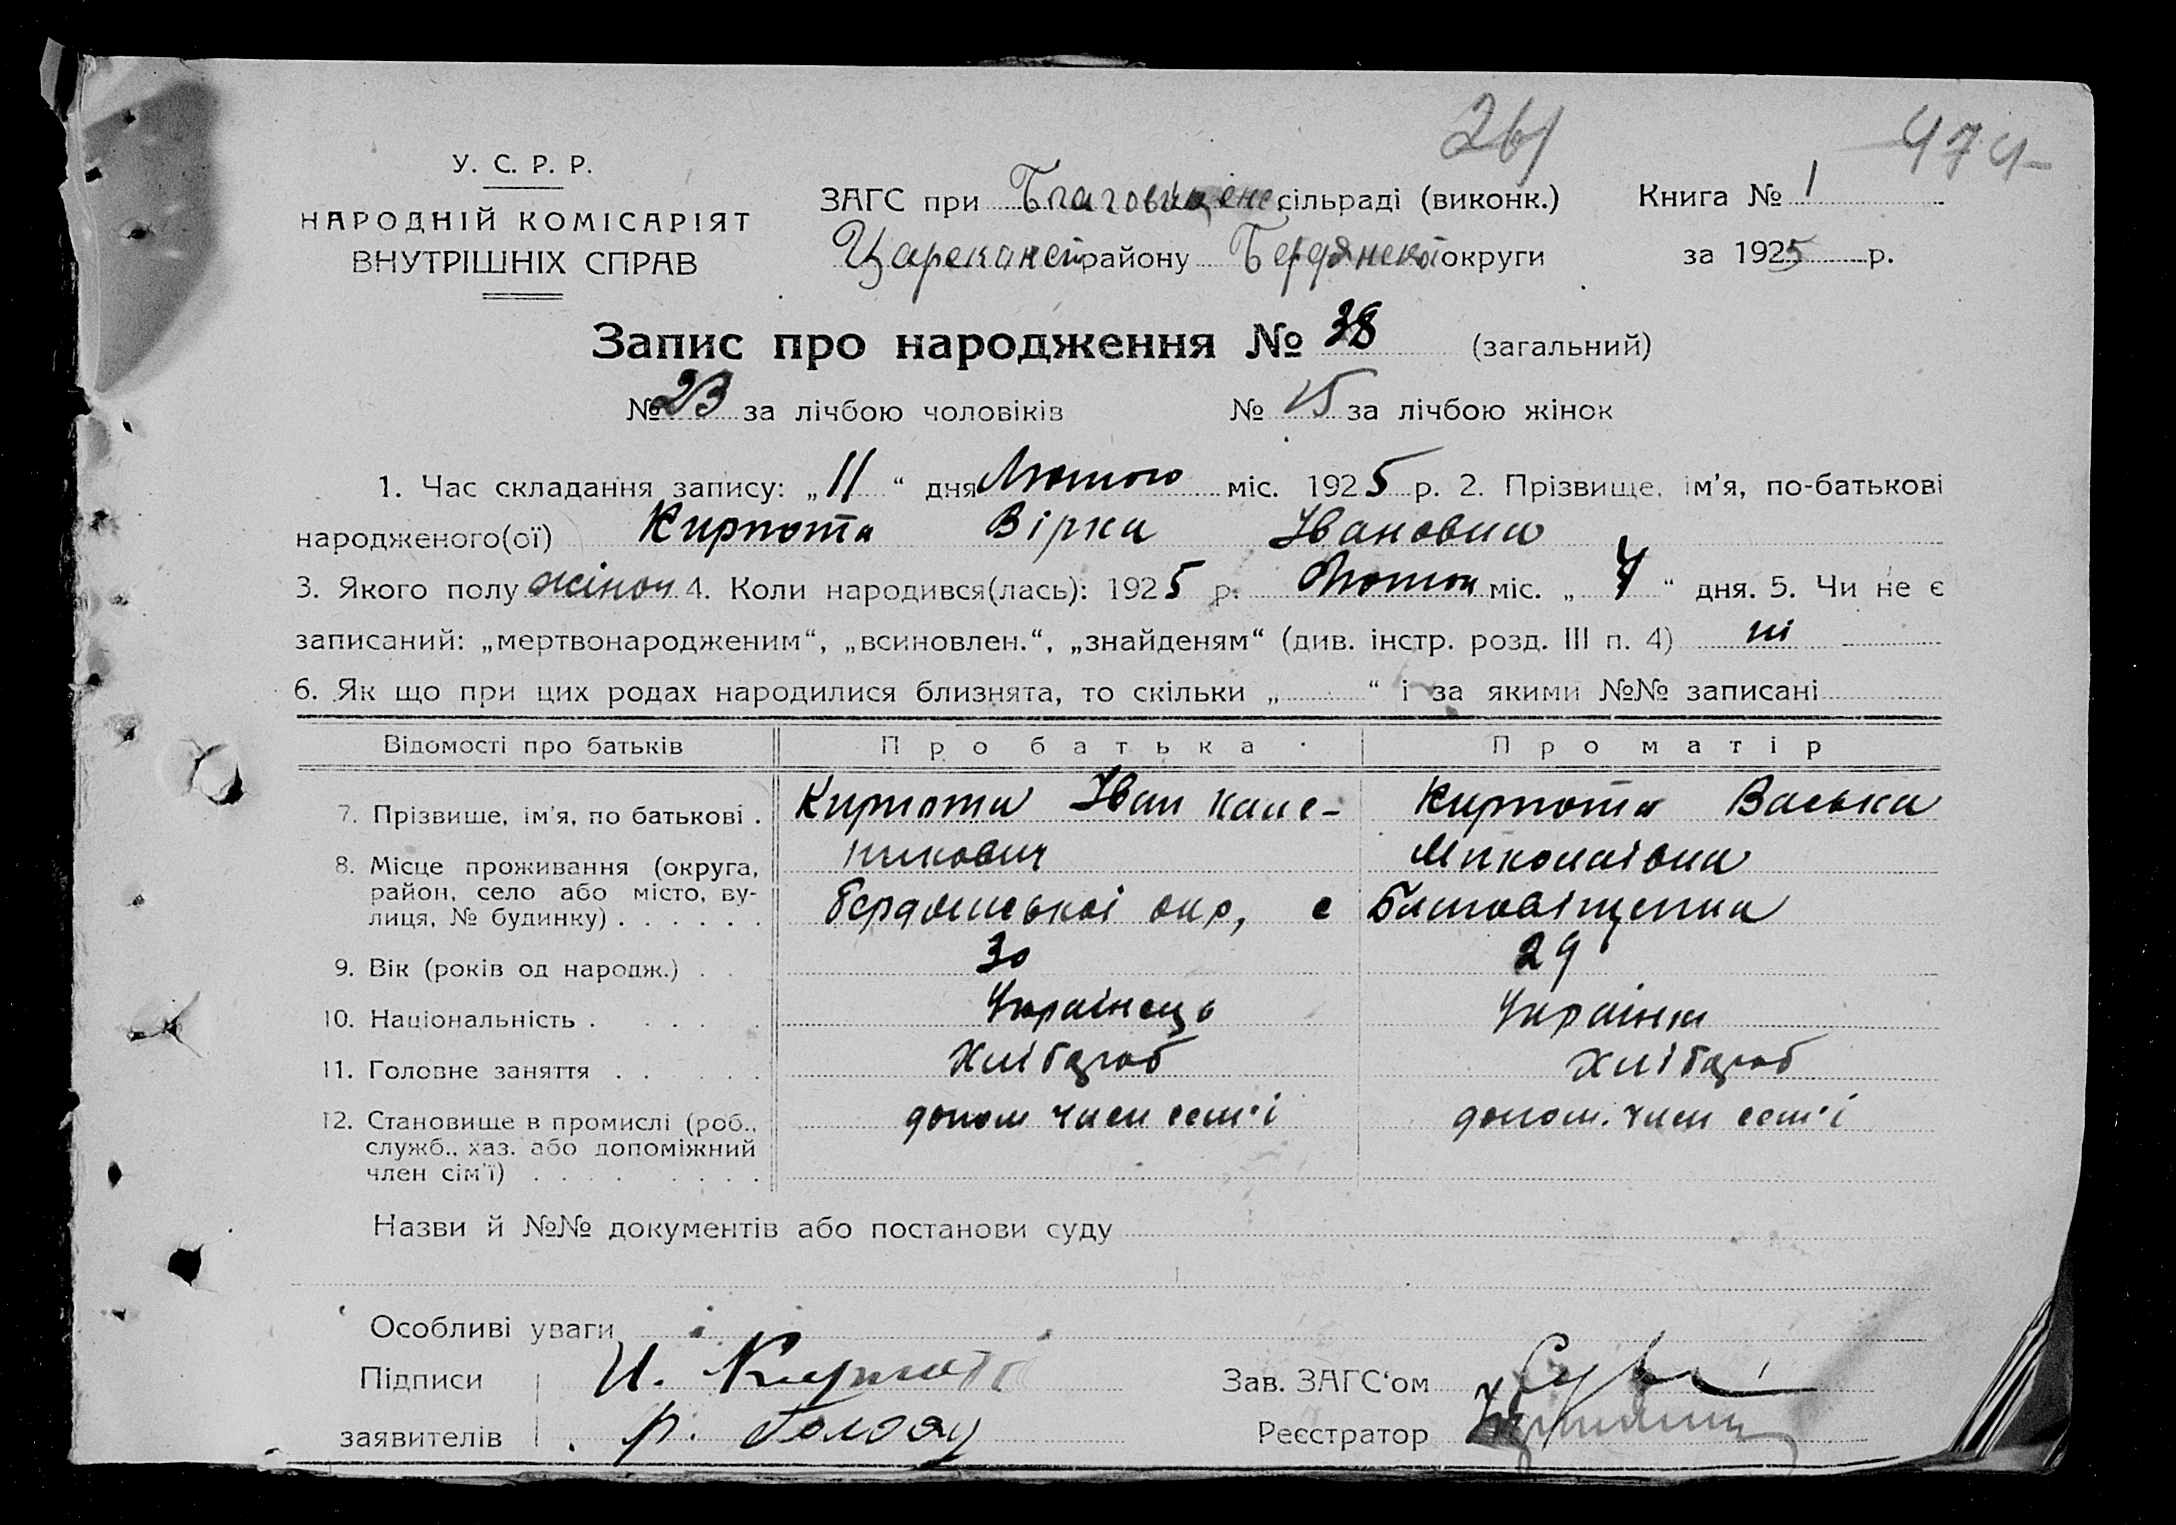 261 474
У. С. Р. Р.
НАРОДНІЙ КОМІСАРІЯТ
ВНУТРІШНІХ СПРАВ
ЗАГС при Благовіщенс сільраді (виконк.) Книга № 1
району Бердянської округи за 1925 р.
Запис про народження № 38 (загальний)
№ 23 за лічбою чоловіків № 15 за лічбою жінок
1. Час складання запису: „11“ дня Лютого міс. 1925 р. 2. Прізвище, ім'я, по-батькові
народженого(ої) Кирпота Вірка Івановна
3. Якого полу жіноч 4. Коли народився(лась): 1925 р. Лютого міс. „4“ дня. 5. Чи не є
записаний: „мертвонародженим“, „всиновлен.“, „знайденям“ (див. інстр. розд. III п. 4) ні
6. Як що при цих родах народилися близнята, то скільки „ “ і за якими №№ записані
Відомості про батьків Про батька Про матір
7. Прізвище, ім'я, по батькові . Кирпота Іван Кале- Кирпота Васька
никович Миколаівна
8. Місце проживання (округа,
район, село або місто, ву-
лиця, № будинку) . . . . . . Бердянської окр, с Благовіщенка
9. Вік (років од народж.) . . 30 29
10. Національність . . . . . Українець Українка
11. Головне заняття . . . . . Хлібороб Хлібороб
12. Становище в промислі (роб., допом член сем'ї допом. член сем'ї
служб., хаз. або допоміжний
член сім'ї) . . . . . . . .
Назви й №№ документів або постанови суду
Особливі уваги
Підписи И. Кирпота Зав. ЗАГС'ом
заявителів р. Реєстратор